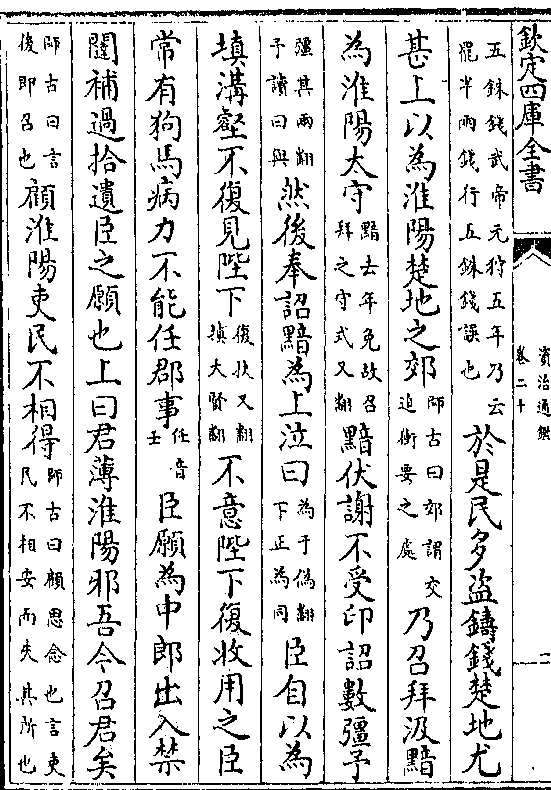 欽定四庫全書
資治通鑑
卷二十
二
五銖錢武帝元狩五年乃云
罷半兩錢行五銖錢誤也
於是民多盜鑄錢楚地尤
甚上以為淮陽楚地之郊
師古曰郊謂交
道衝要之處
乃召拜汲黯
為淮陽太守
黯去年免故召
拜之守式又翻
黯伏謝不受印詔數彊予
彊其兩翻
予讀曰與
然後奉詔黯為上泣曰
為于偽翻
下正為同
臣自以為
填溝壑不復見陛下
復扶又翻
填大賢翻
不意陛下復收用之臣
常有狗馬病力不能任郡事
任音
壬
臣願為中郎出入禁
闥補過拾遺臣之願也上曰君薄淮陽邪吾今召君矣
師古曰言
後即召也
顧淮陽吏民不相得
師古曰顧思念也言吏
民不相安而失其所也